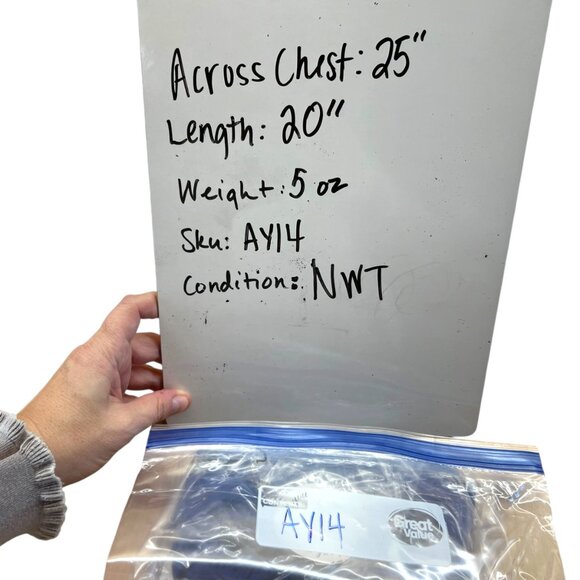 Across Chest: 25"
Length: 20"
Weight: 5 oz
Sku: AY14
Condition: NWT
AY14
Great
Value